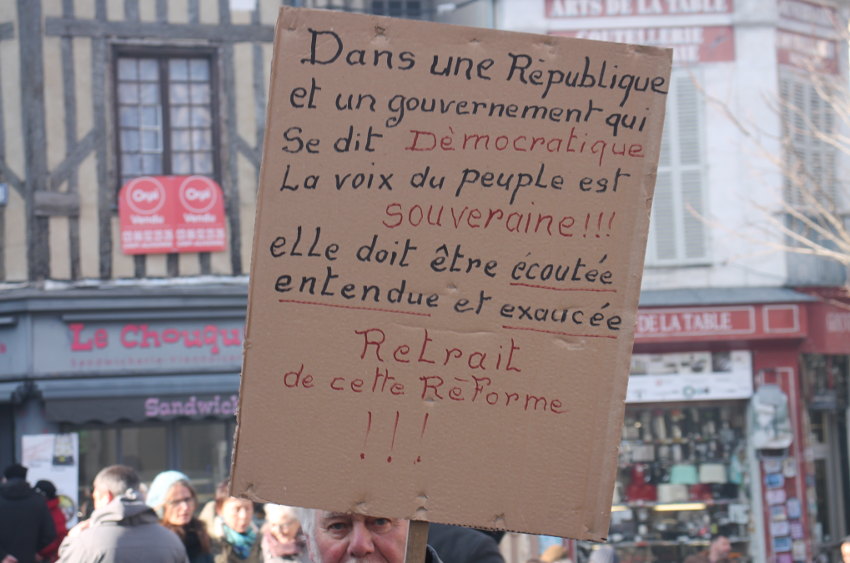 Dans une République
et un gouvernement qui
Se dit Dèmocratique
La voix du peuple est
souveraine!!!
elle doit être écoutée
entendue et exaucée
Retrait
de cette Rèforme
!!!
ARTS DE LA TABLE
Orpi
Vendu
Orpi
Vendu
Le Chouqu
Sandwich
DE LA TABLE